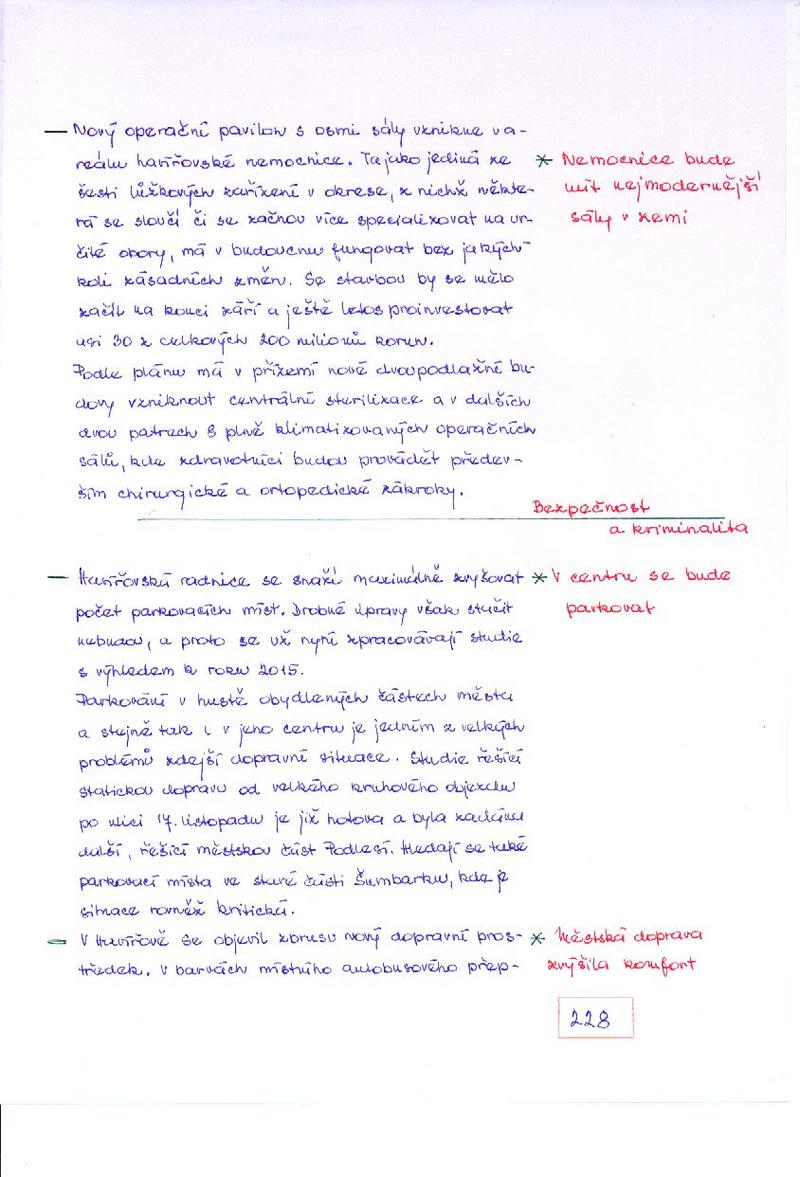 — Nový operační pavilon s osmi sály vznikne v a-
reálu havířovské nemocnice. Ta jako jediná ze
šesti lůžkových zařízení v okrese, z nichž někte-
rá se sloučí či se začnou více specializovat na ur-
čité obory, má v budoucnu fungovat bez jakých-
koli zásadních změn. Se stavbou by se mělo
začít na konci září a ještě letos proinvestovat
asi 30 z celkových 200 milionů korun.
Podle plánu má v přízemí nové dvoupodlažní bu-
dovy vzniknout centrální sterilizace a v dalších
dvou patrech 8 plně klimatizovaných operačních
sálů, kde zdravotníci budou provádět přede-
vším chirurgické a ortopedické zákroky.
* Nemocnice bude
mít nejmodernější
sály v zemi
Bezpečnost
a kriminalita
— Havířovská radnice se snaží maximálně zvyšovat
počet parkovacích míst. Drobné úpravy však stačit
nebudou, a proto se už nyní zpracovávají studie
s výhledem k roku 2015.
Parkování v hustě obydlených částech města
a stejně tak i v jeho centru je jedním z velkých
problémů zdejší dopravní situace. Studie řešící
statickou dopravu od velkého kruhového objezdu
po ulici 17. listopadu je již hotova a byla zadána
další, řešící městskou část Podlesí. Hledají se také
parkovací místa ve staré části Šumbarku, kde je
situace rovněž kritická.
* V centru se bude
parkovat
— V Havířově se objevil zbrusu nový dopravní pros-
tředek. V barvách místního autobusového přep-
* Městská doprava
zvýšila komfort
228